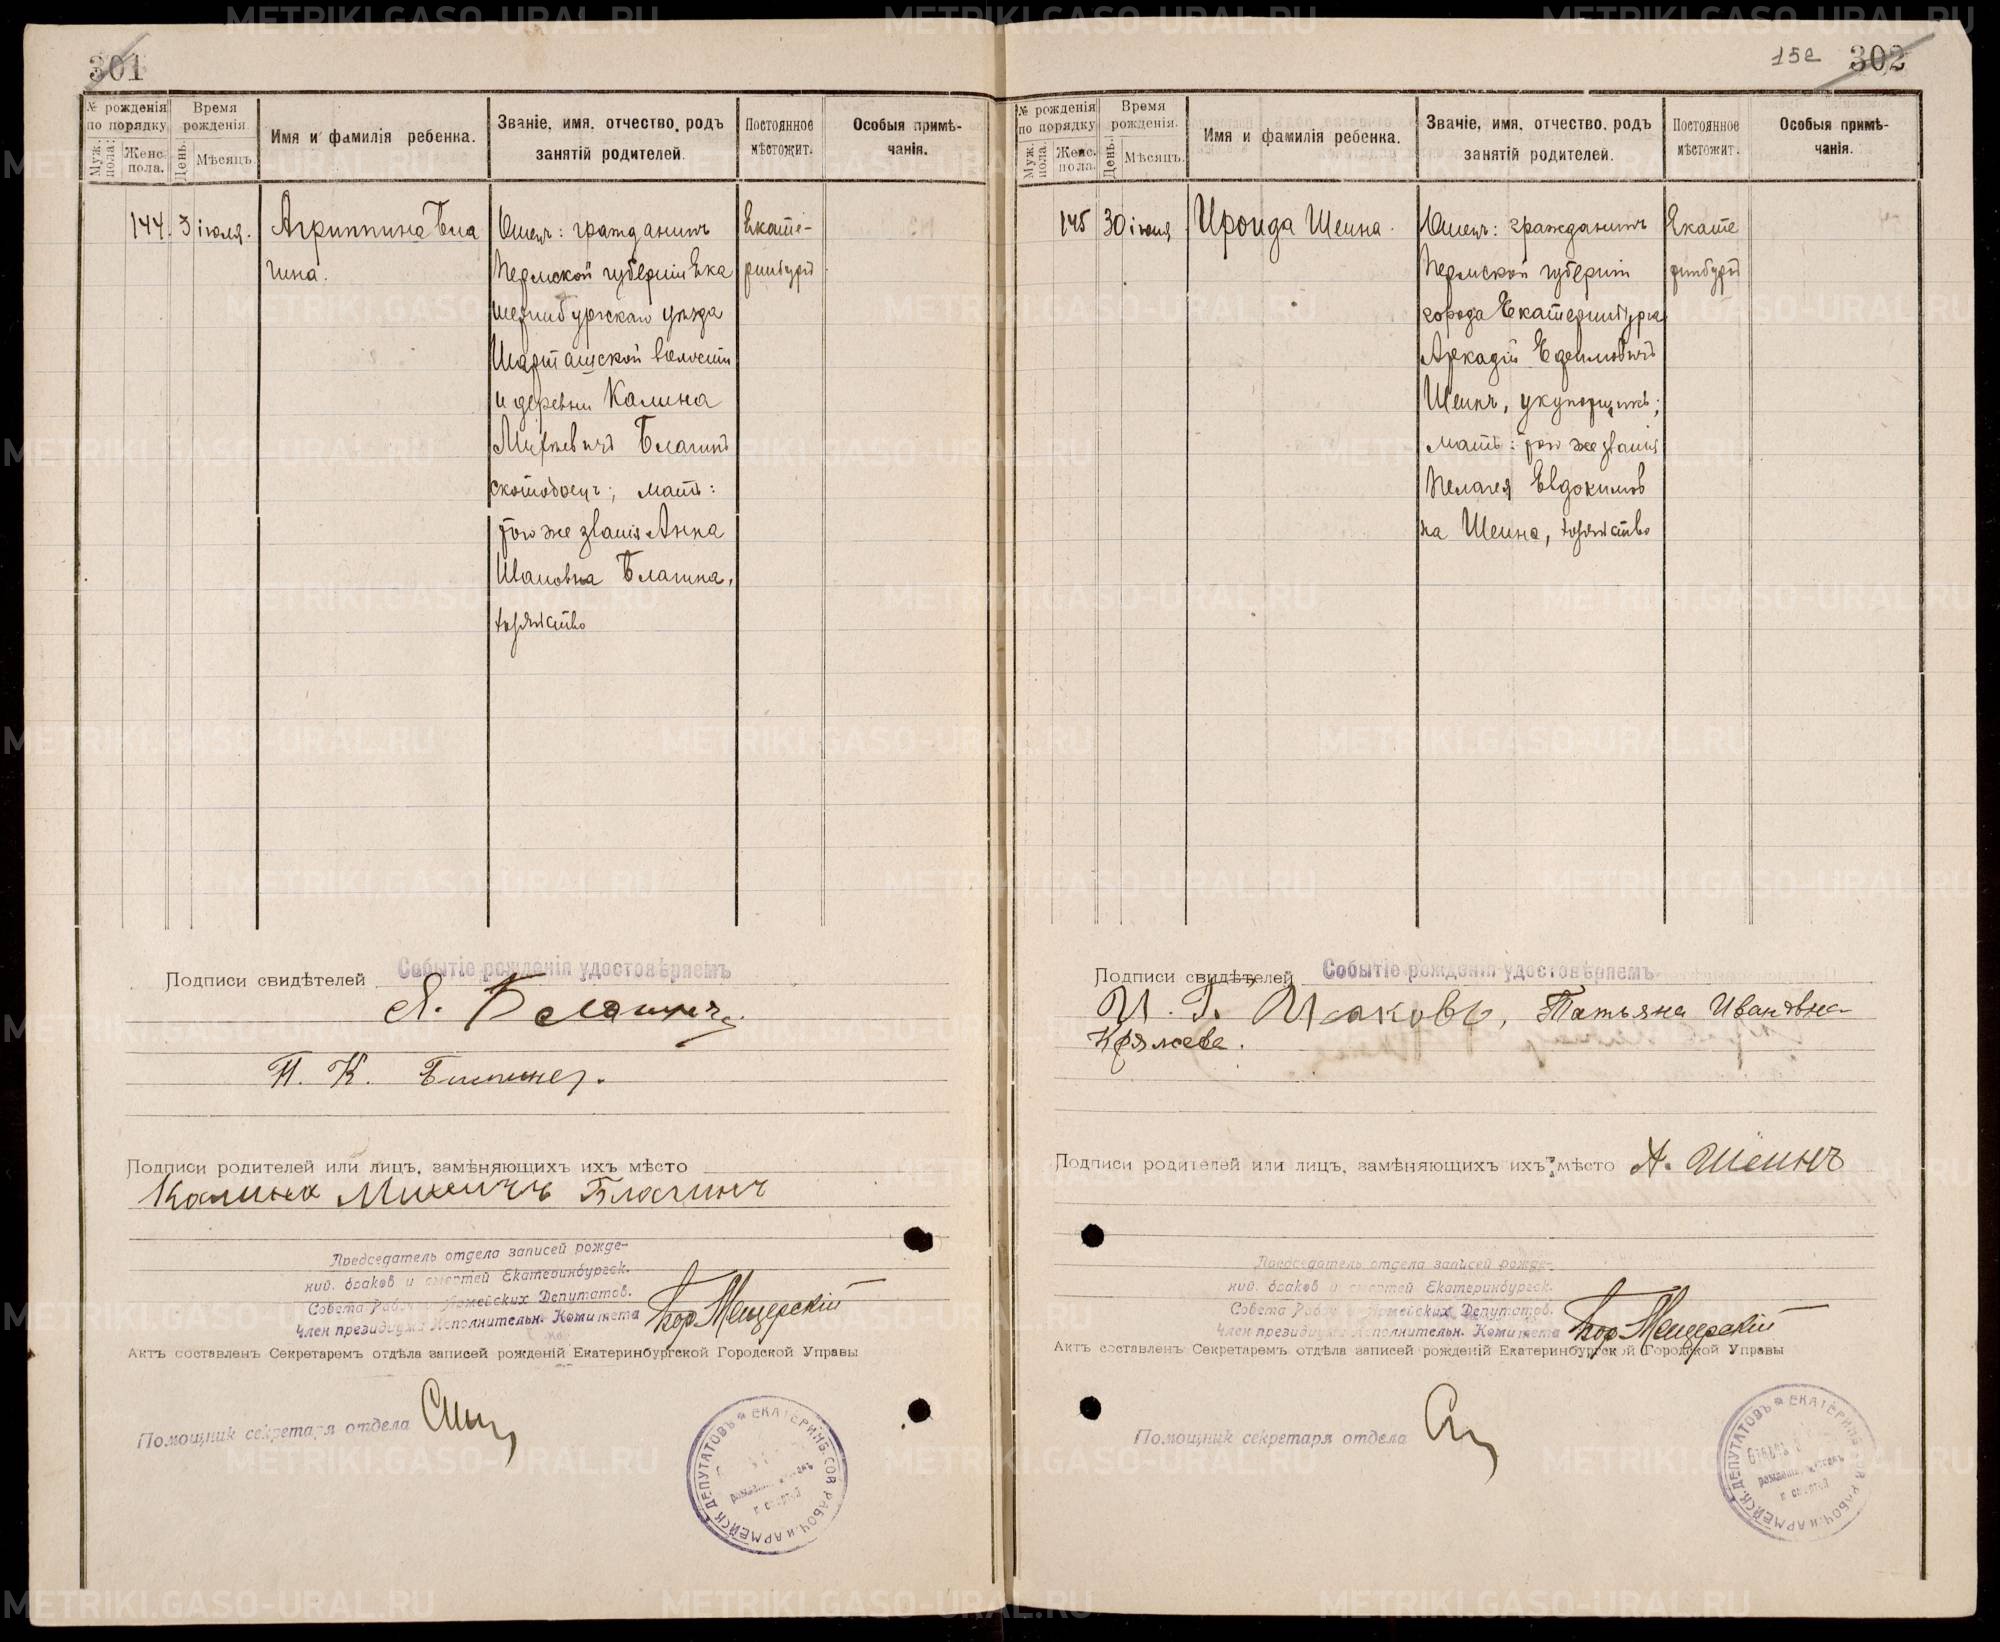 301
№ рожденія по порядку
Муж. пола.
Женс. пола.
Время рожденія.
День.
Мѣсяцъ.
Имя и фамилія ребенка.
Званіе, имя, отчество, родъ занятій родителей.
Постоянное мѣстожит.
Особыя примѣчанія.
144. 3 іюля.
Агриппина Бла
гина.
Отецъ: гражданинъ
Пермской губерніи Ека
теринбургскаго уѣзда
Шарташской волости
и деревни Калина
Благинъ
скотобоецъ; мать:
того же званія Анна
Ивановна Благина,
хозяйство
Екате-
ринбургъ
Подписи свидѣтелей
Событіе рожденія удостовѣряемъ
П. К.
Подписи родителей или лицъ, замѣняющихъ ихъ мѣсто
Калина Благинъ
Председатель отдела записей рожде-
ний, браков и смертей Екатеринбургск.
Совета Рабоч. и Армейских Депутатов.
Член президиума Исполнительн. Комитета
Мещерскій
Актъ составленъ Секретаремъ отдѣла записей рожденій Екатеринбургской Городской Управы
Помощник секретаря отдела
ЕКАТЕРИНБ. СОВ. РАБОЧ. и АРМЕЙСК. ДЕПУТАТОВЪ
и смертей
152 302
№ рожденія по порядку
Муж. пола.
Женс. пола.
Время рожденія.
День.
Мѣсяцъ.
Имя и фамилія ребенка.
Званіе, имя, отчество, родъ занятій родителей.
Постоянное мѣстожит.
Особыя примѣчанія.
145 30 іюня
Ироида Шеина.
Отецъ: гражданинъ
Пермской губерніи
города Екатеринбурга
Аркадій Ефимовичъ
Шеинъ, укупорщикъ;
мать: того же званія
Пелагея Евдокимов
на Шеина, хозяйство
Екате
ринбургъ
Подписи свидѣтелей
Событіе рожденія удостовѣряемъ
И. Г. Исаковъ, Татьяна Ивановна
Кряжева.
Подписи родителей или лицъ, замѣняющихъ ихъ мѣсто А. Шеинъ
Председатель отдела записей рожде-
ний, браков и смертей Екатеринбургск.
Совета Рабоч. и Армейских Депутатов.
Член президиума Исполнительн. Комитета
Мещерскій
Актъ составленъ Секретаремъ отдѣла записей рожденій Екатеринбургской Городской Управы
Помощник секретаря отдела
ЕКАТЕРИНБ. СОВ. РАБОЧ. и АРМЕЙСК. ДЕПУТАТОВЪ
и смертей
METRIKI.GASO-URAL.RU